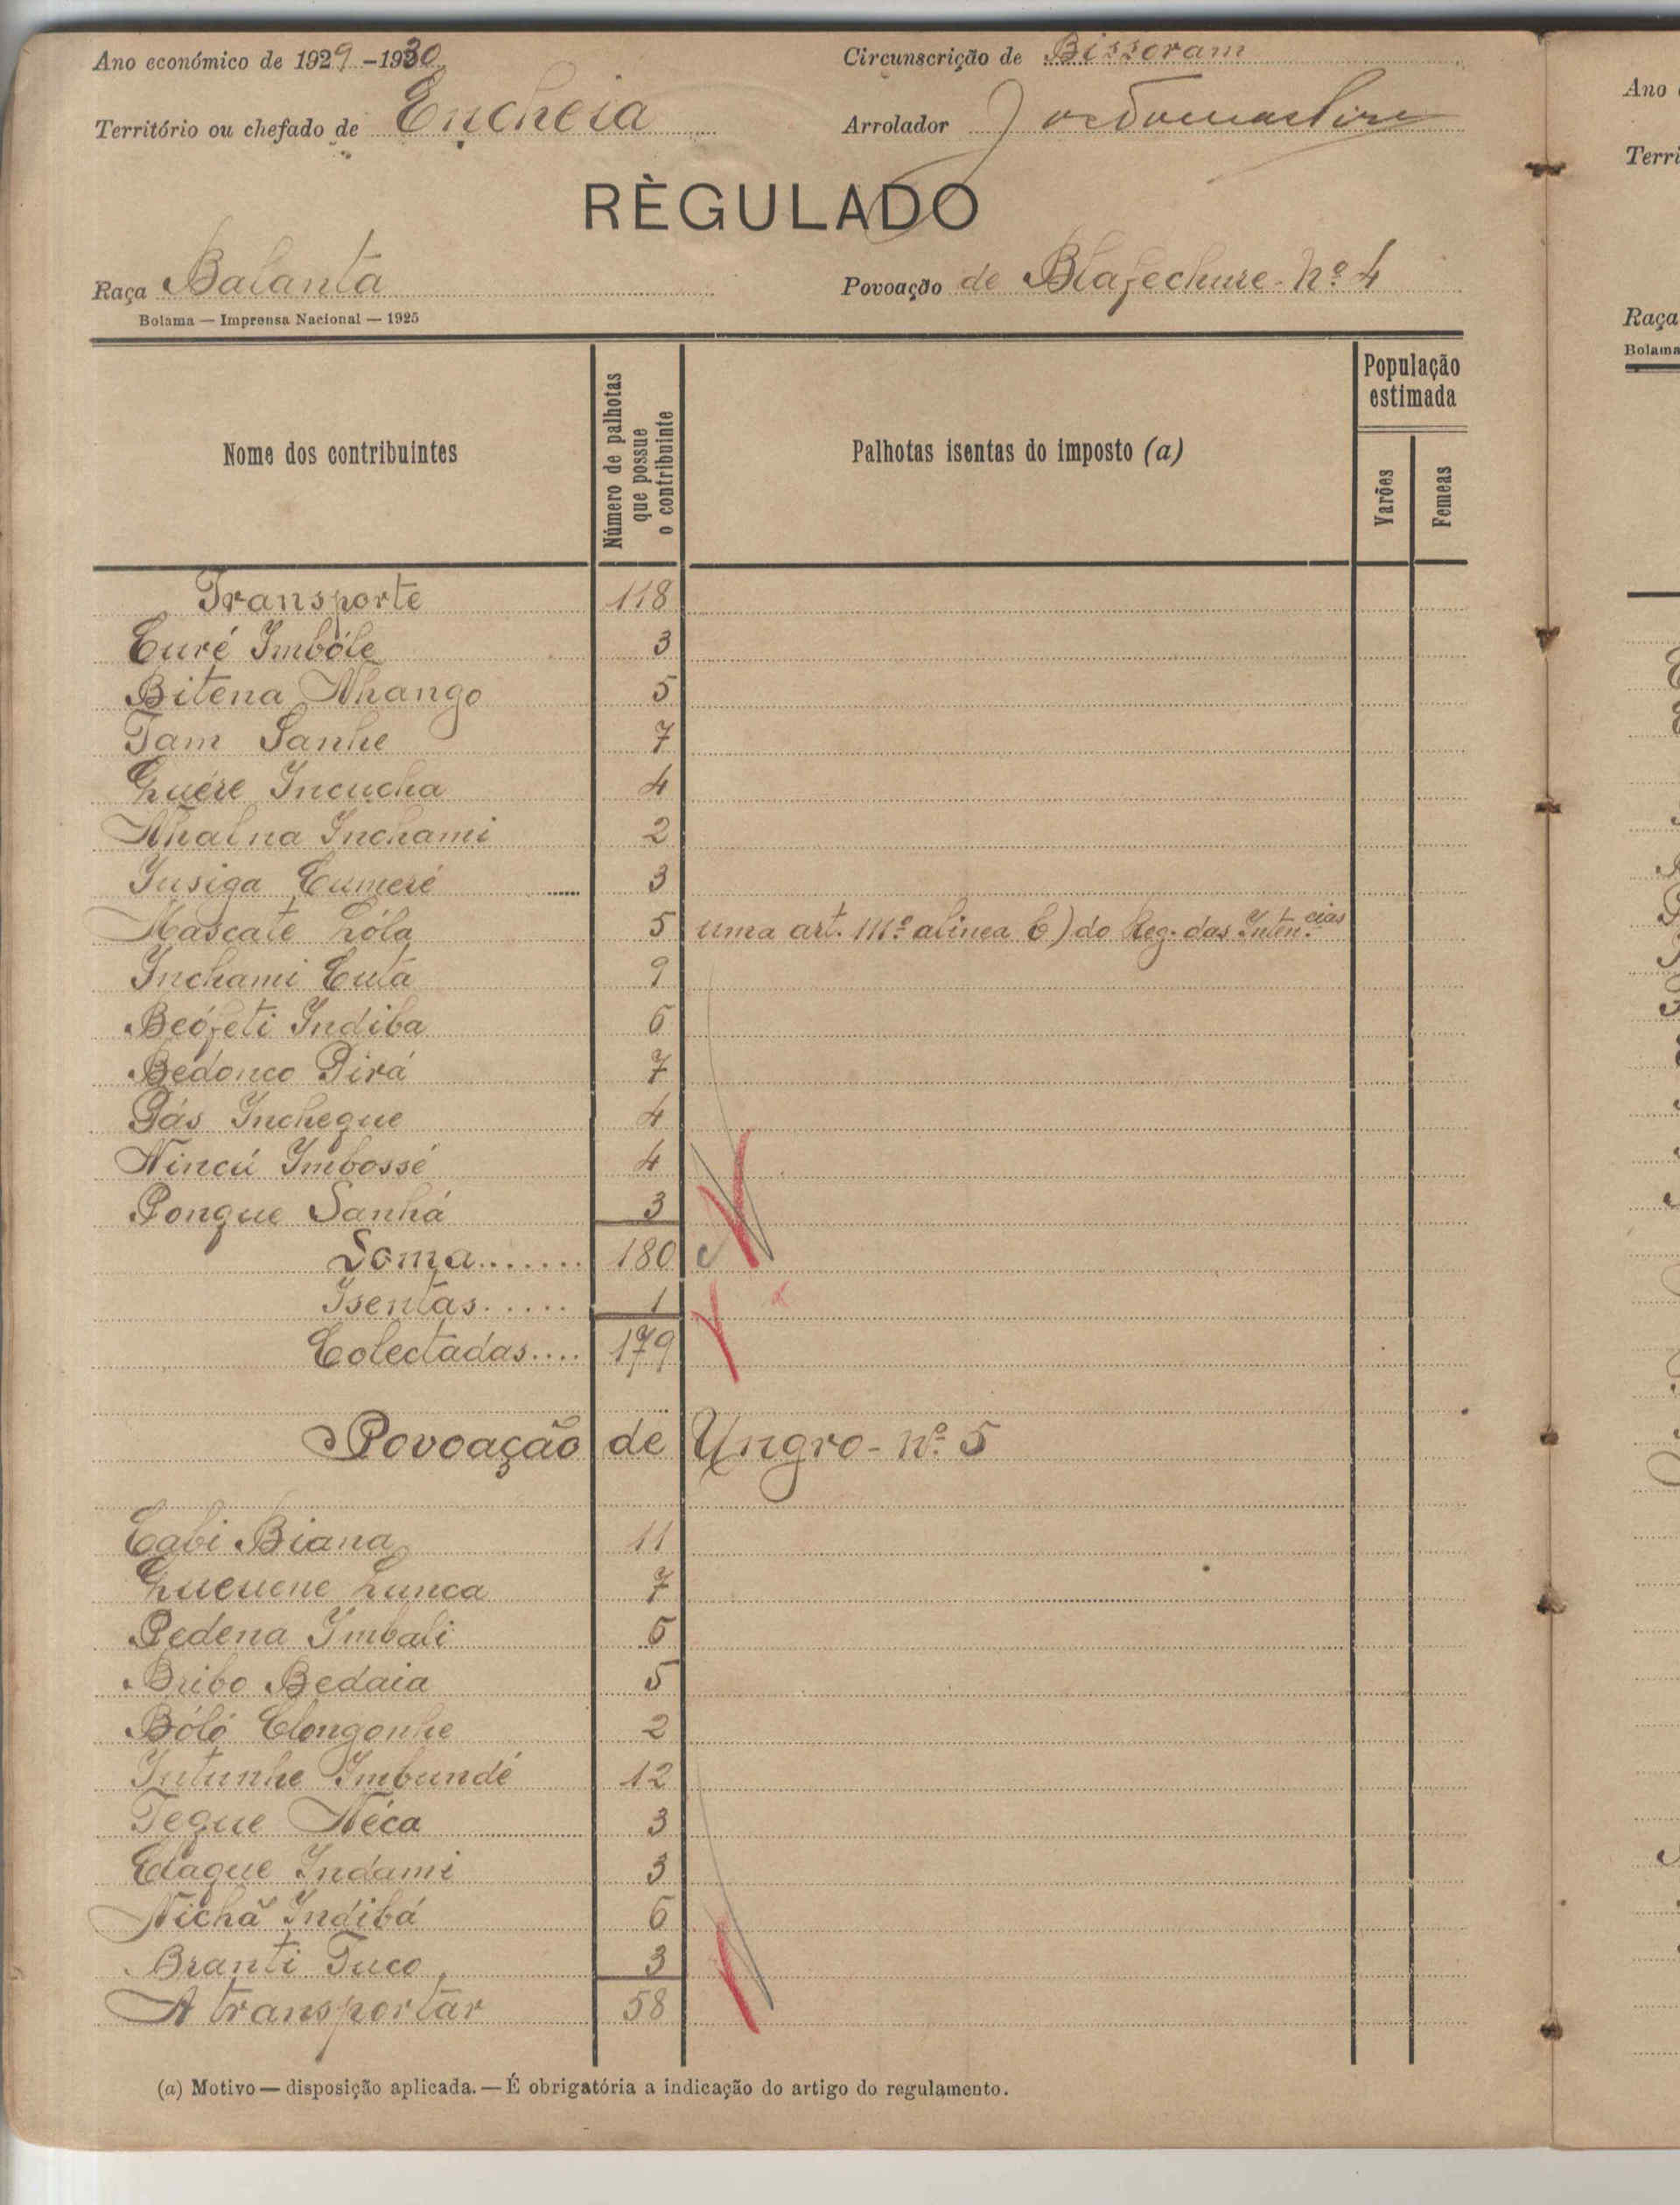 Ano económico de 1929-1930 Circunscrição de Bissoram
Território ou chefado de Encheia Arrolador
RÈGULADO
Raça Balanta Povoação de Blafechure - Nº 4
Bolama — Imprensa Nacional — 1925
Nome dos contribuintes Número de palhotas que possue o contribuinte Palhotas isentas do imposto (a) População estimada Varões Femeas
Transporte 118
Curé Imbóle 3
Bitena Nhango 5
Tam Sanhe 7
Quére Incucha 4
Nhalna Inchami 2
Iusiga Cumeré 3
Mascate Lóla 5 uma art. 111º alinea b) do Reg. das Inten.cias
Inchami Cuta 9
Beófeti Indiba 6
Bedonco Pirá 7
Pás Incheque 4
Nincú Imbossé 4
Ponque Sanhá 3
Soma....... 180
Isentas..... 1
Colectadas.... 179
Povoação de Ungro - nº 5
Cabi Biana 11
Queuene Lunca 7
Pedena Imbali 6
Bribo Bedaia 5
Bóló Clongonhe 2
Iutunhe Imbundé 12
Teque Néca 3
Claque Indami 3
Nichã Indibá 6
Branti Tuco 3
A transportar 58
(a) Motivo — disposição aplicada. — É obrigatória a indicação do artigo do regulamento.
Ano
Terri
Raça
Bolama